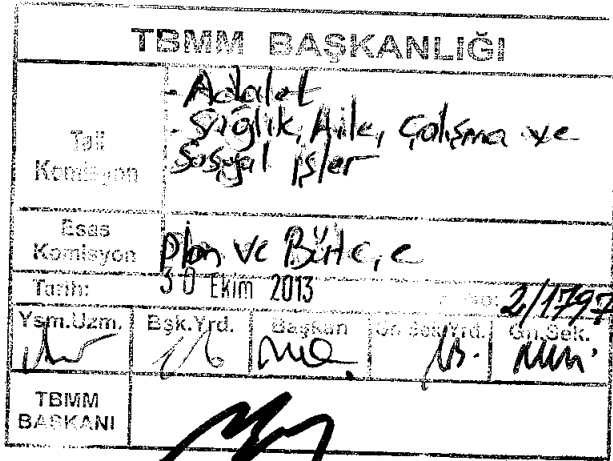 TBMM BAŞKANLIĞI
Tali Komisyon
- Adalet
- Sağlık, Aile, Çalışma ve
Sosyal işler
Esas Komisyon
Plan ve Bütçe
Tarih: 30 Ekim 2013 No: 2/1797
Ysm.Uzm. Bşk.Yrd. Başkan Gn.Sek.Yrd. Gn.Sek.
TBMM
BAŞKANI